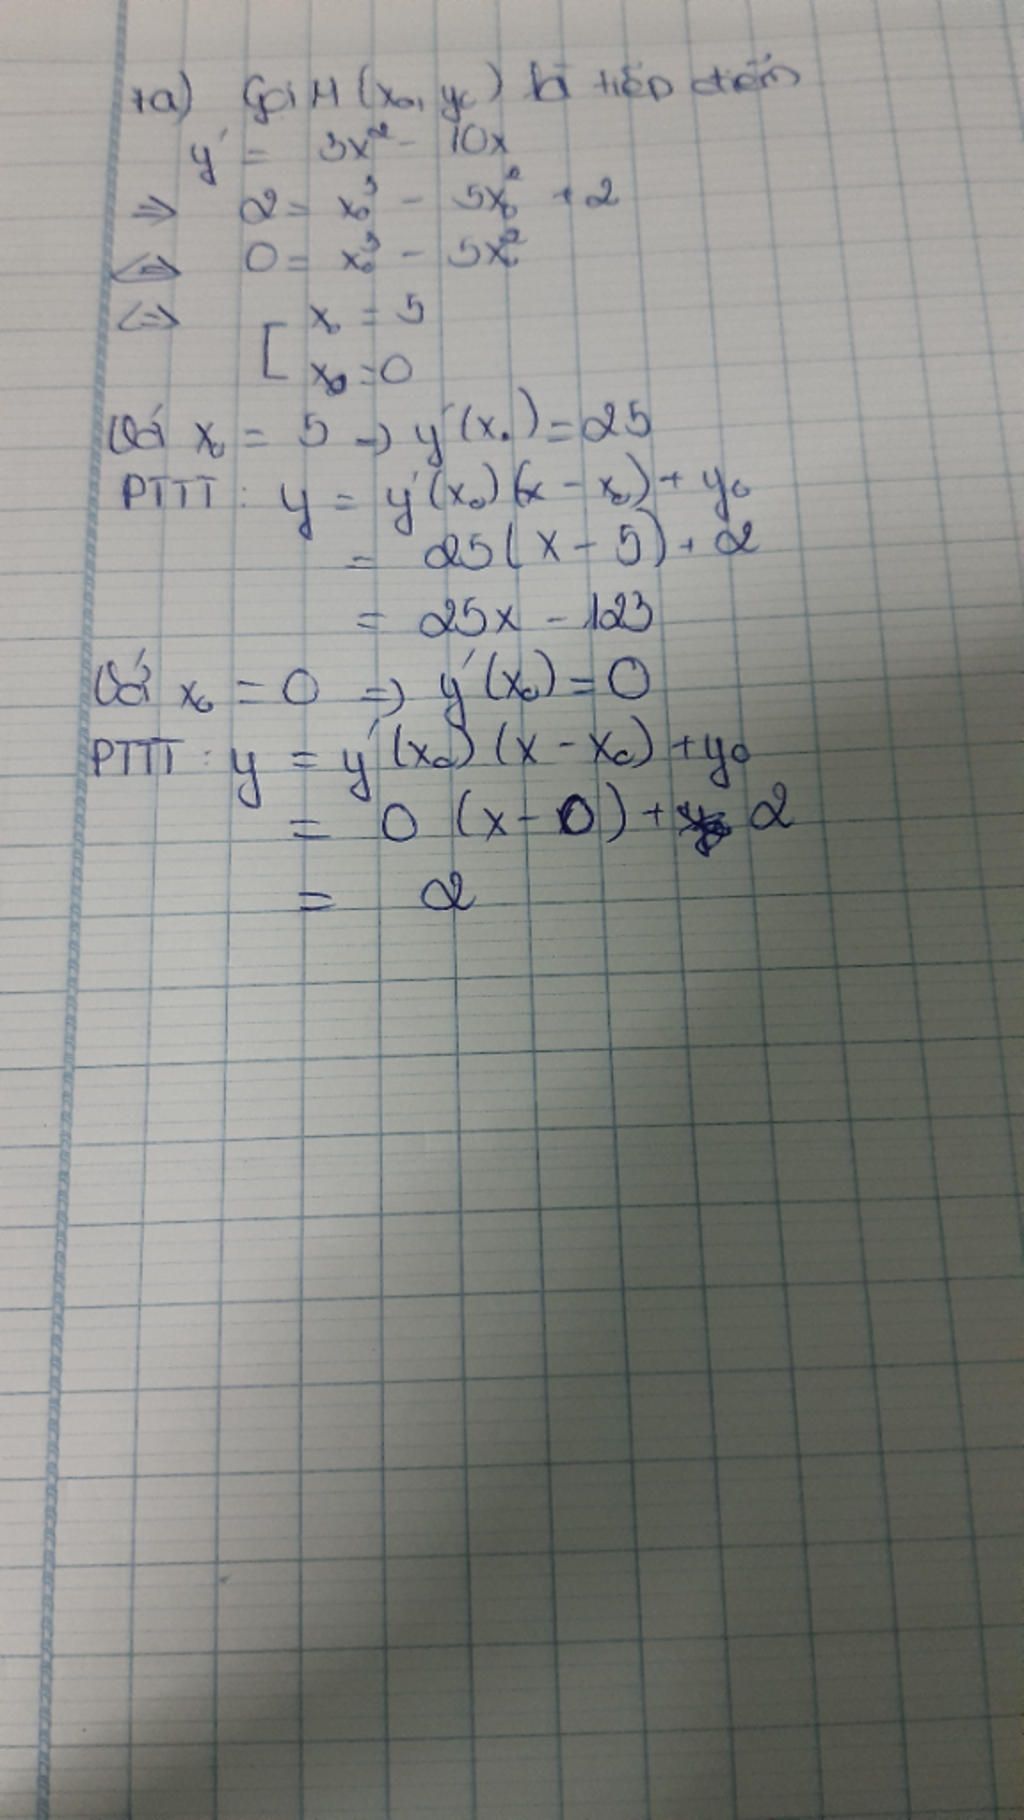 1a) Gọi M (x₀, y₀) là tiếp điểm
y' = 3x² - 10x
=> 2 = x₀³ - 5x₀² + 2
<=> 0 = x₀³ - 5x₀²
<=> [ x₀ = 5
x₀ = 0
Với x₀ = 5 => y'(x₀) = 25
PTTT : y = y'(x₀)(x - x₀) + y₀
= 25(x - 5) + 2
= 25x - 123
Với x₀ = 0 => y'(x₀) = 0
PTTT : y = y'(x₀)(x - x₀) + y₀
= 0 (x - 0) + 2
= 2